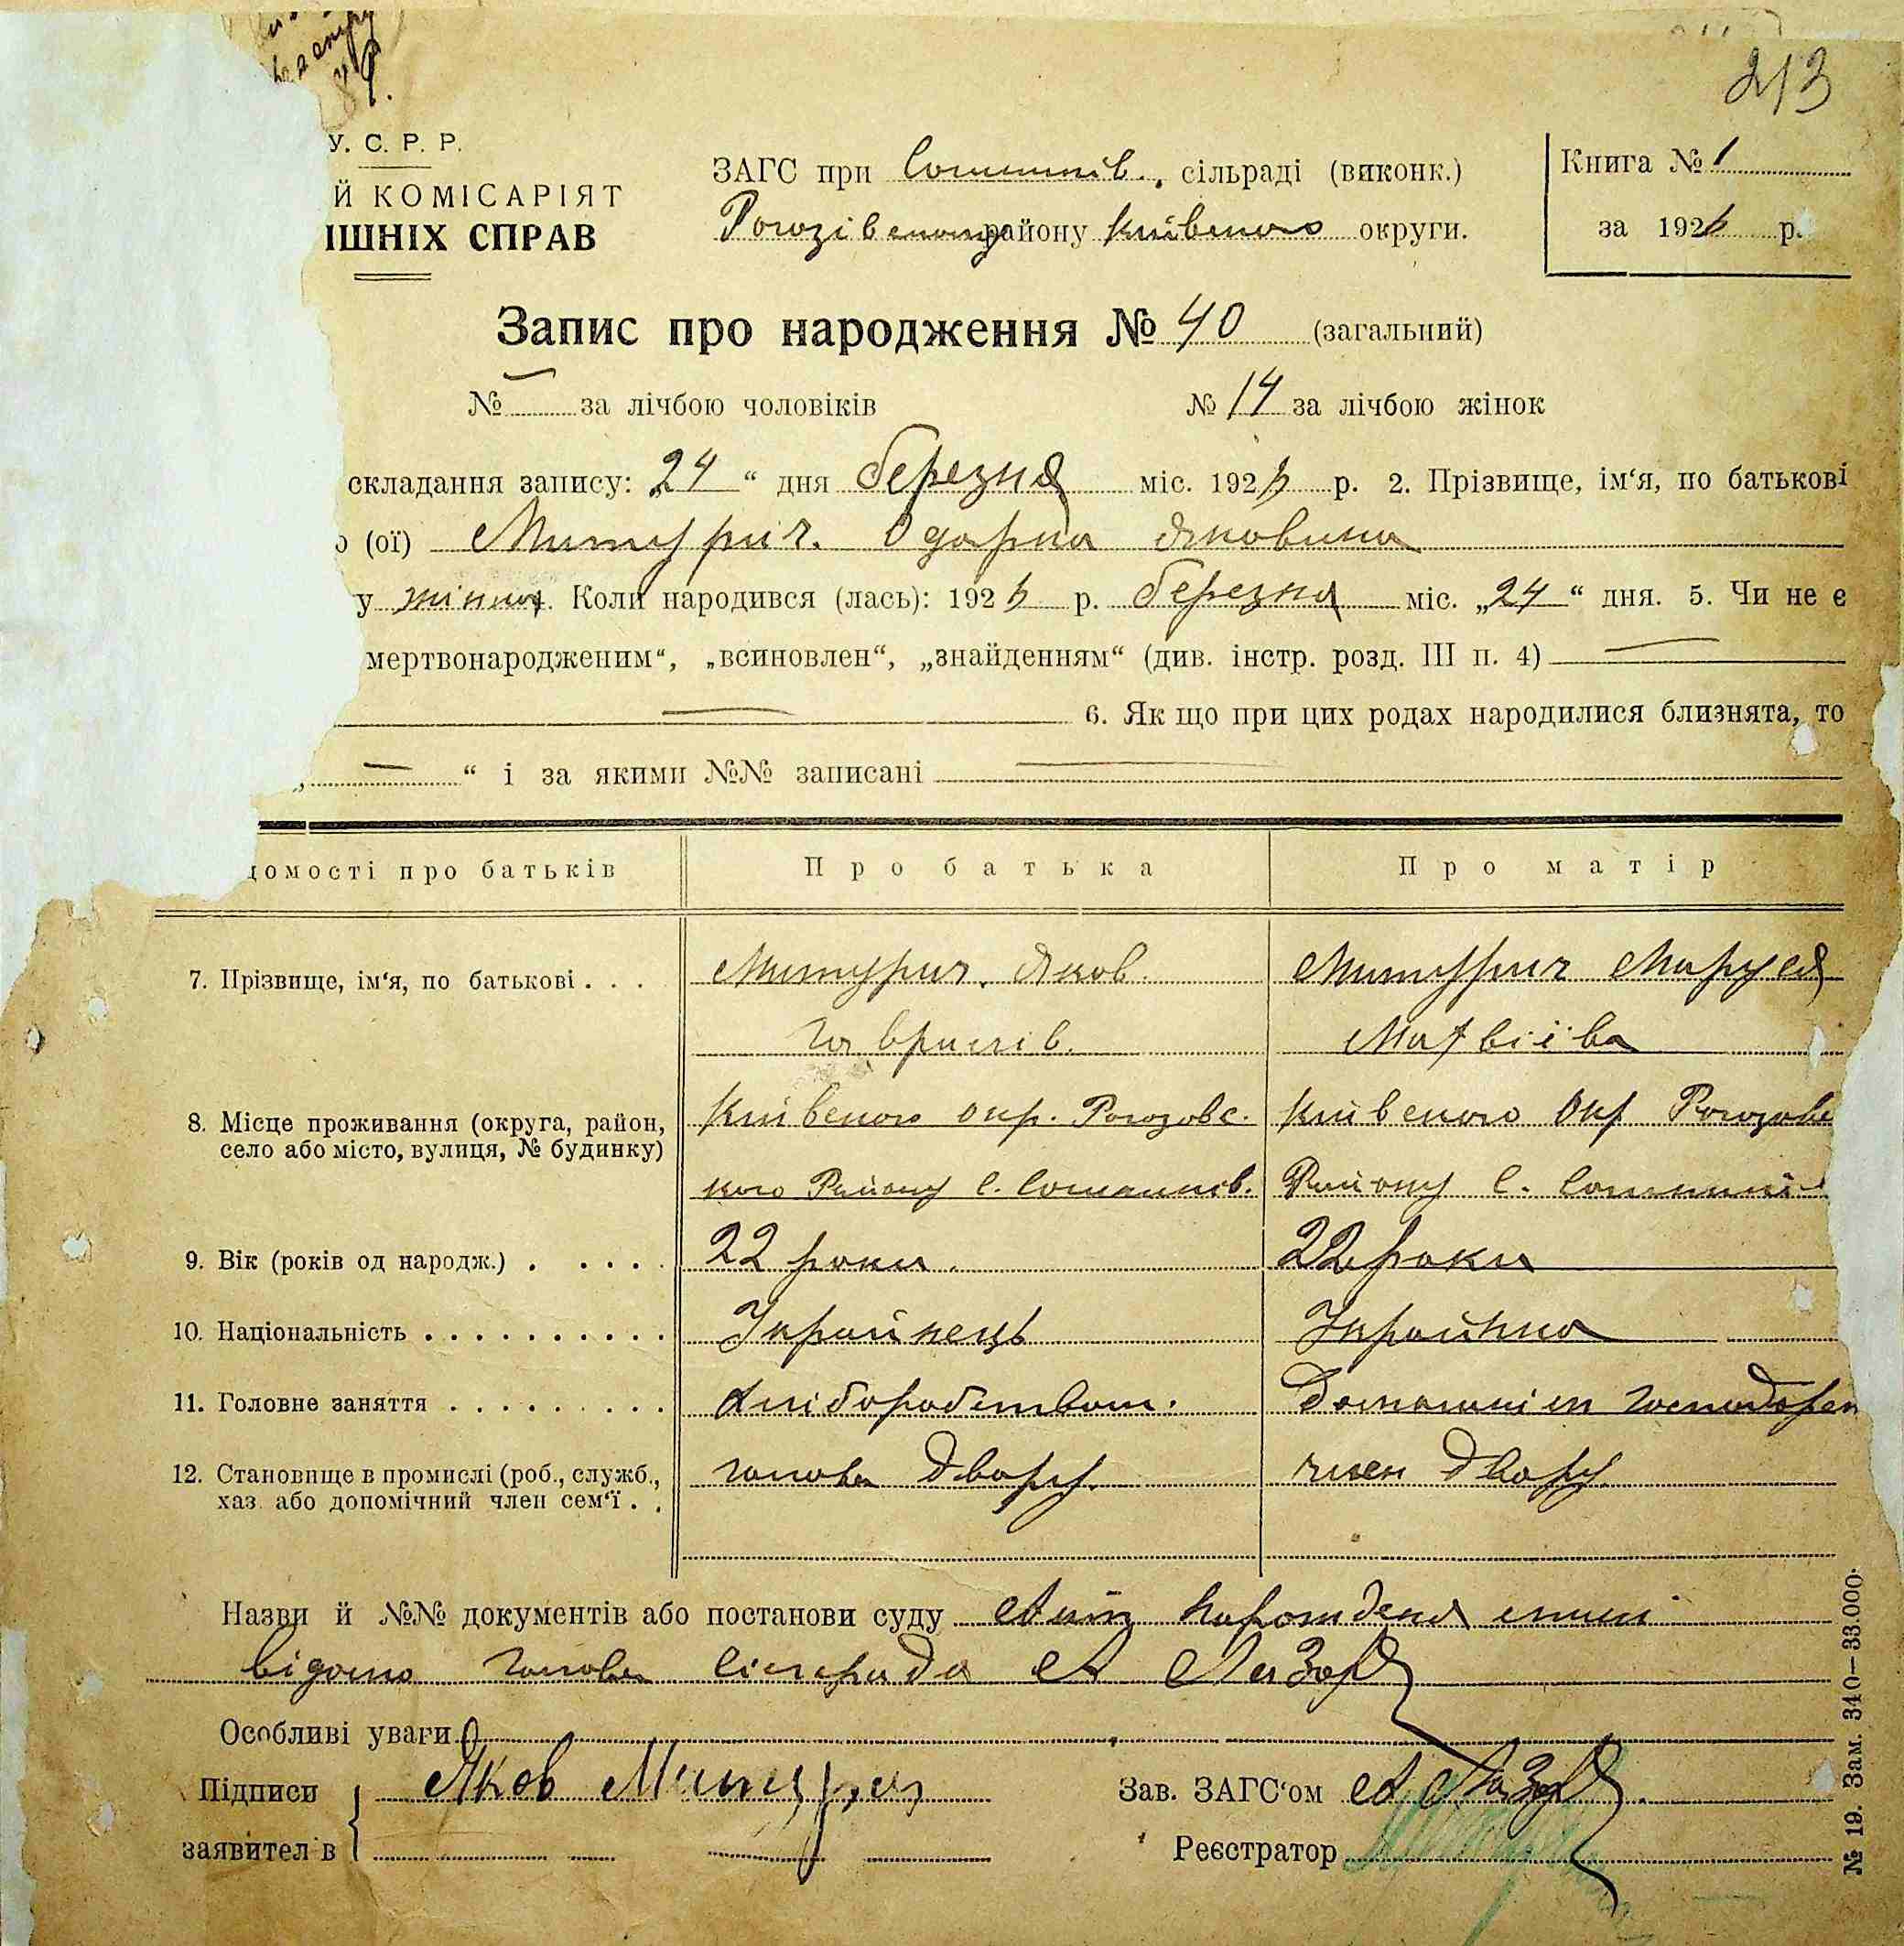 213
У. С. Р. Р.
Й КОМІСАРІЯТ
ІШНІХ СПРАВ
ЗАГС при Сошників. сільраді (виконк.)
Рогозівського району Київського округи.
Книга № 1
за 1926 р.
Запис про народження № 40 (загальний)
№ — за лічбою чоловіків
№ 14 за лічбою жінок
складання запису: „24“ дня березня міс. 1926 р. 2. Прізвище, ім‘я, по батькові
о (ої) Митурич. Одарка Яковина
у жіноч. Коли народився (лась): 1926 р. березня міс. „24“ дня. 5. Чи не є
мертвонародженим“, „всиновлен“, „знайденням“ (див. інстр. розд. III п. 4) —
— 6. Як що при цих родах народилися близнята, то
„ — “ і за якими №№ записані —
домості про батьків Про батька Про матір
7. Прізвище, ім‘я, по батькові . . . Митурич. Яков. Митурич Маруся
Гаврилів. Матвіїва
8. Місце проживання (округа, район, Київського окр. Рогозовс. Київського Окр Рогозовс
село або місто, вулиця, № будинку)
кого Району С. Сошников. Району С. Сошникі
9. Вік (років од народж.) . . . . . 22 роки. 22 роки
10. Національність . . . . . . . . . . Український Українка
11. Головне заняття . . . . . . . . . Хліборобством. Домашнім господарст
12. Становище в промислі (роб., служб., голова Двору. член Двору
хаз. або допомічний член сем‘ї . .
Назви й №№ документів або постанови суду Акт народження
відомо голова сільрада А Лазор
Особливі уваги
Підписи Яков Митурич
заявителів
Зав. ЗАГС‘ом А Лазор
Реєстратор
№ 19. Зам. 340—33.000.